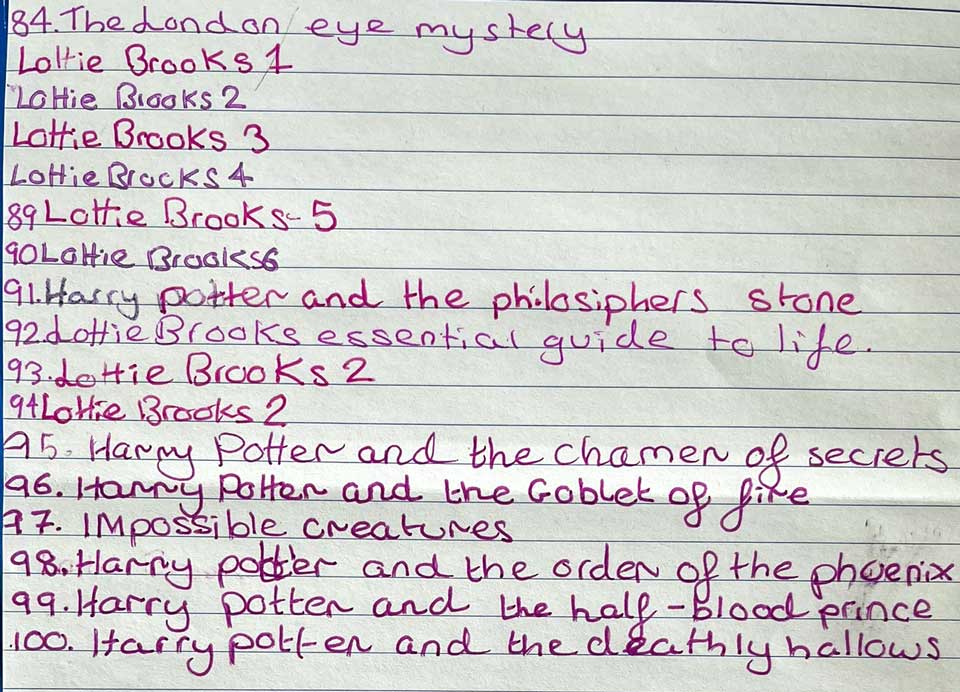 84. The London eye mystery
Lottie Brooks 1
Lottie Brooks 2
Lottie Brooks 3
Lottie Brooks 4
89 Lottie Brooks - 5
90 Lottie Brooks 6
91. Harry potter and the philosiphers stone
92. Lottie Brooks essential guide to life.
93. Lottie Brooks 2
94 Lottie Brooks 2
95. Harry Potter and the chamer of secrets
96. Harry Potter and the Goblet of fire
97. IMpossible creatures
98. Harry potter and the order of the phoenix
99. Harry potter and the half-blood prince
100. Harry potter and the deathly hallows